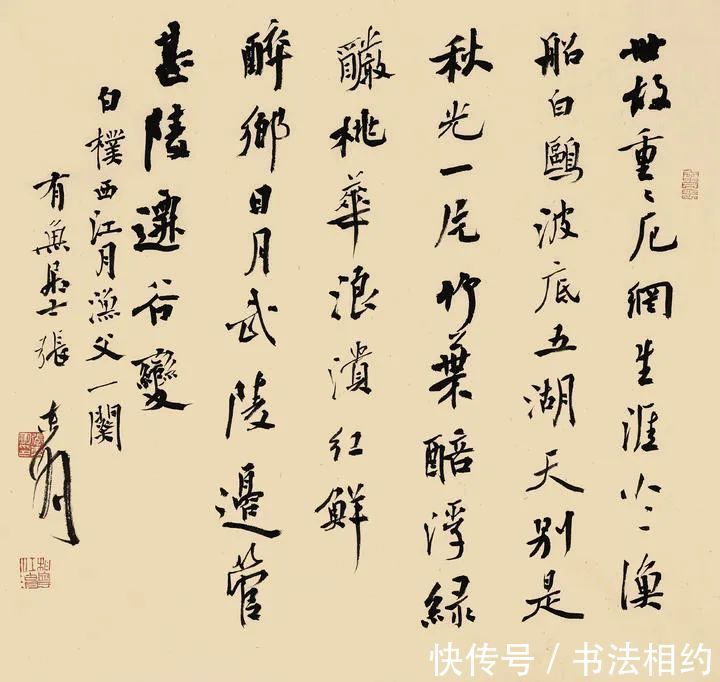 世故重〻厄網生涯小〻漁
船白鷗波底五湖天別是
秋光一片竹葉醅浮緑
釅桃華浪漬紅鮮
醉鄉日月武陵邊管
甚陵遷谷變
白樸西江月漁父一闋
有魚居士張
快传号 / 书法相约